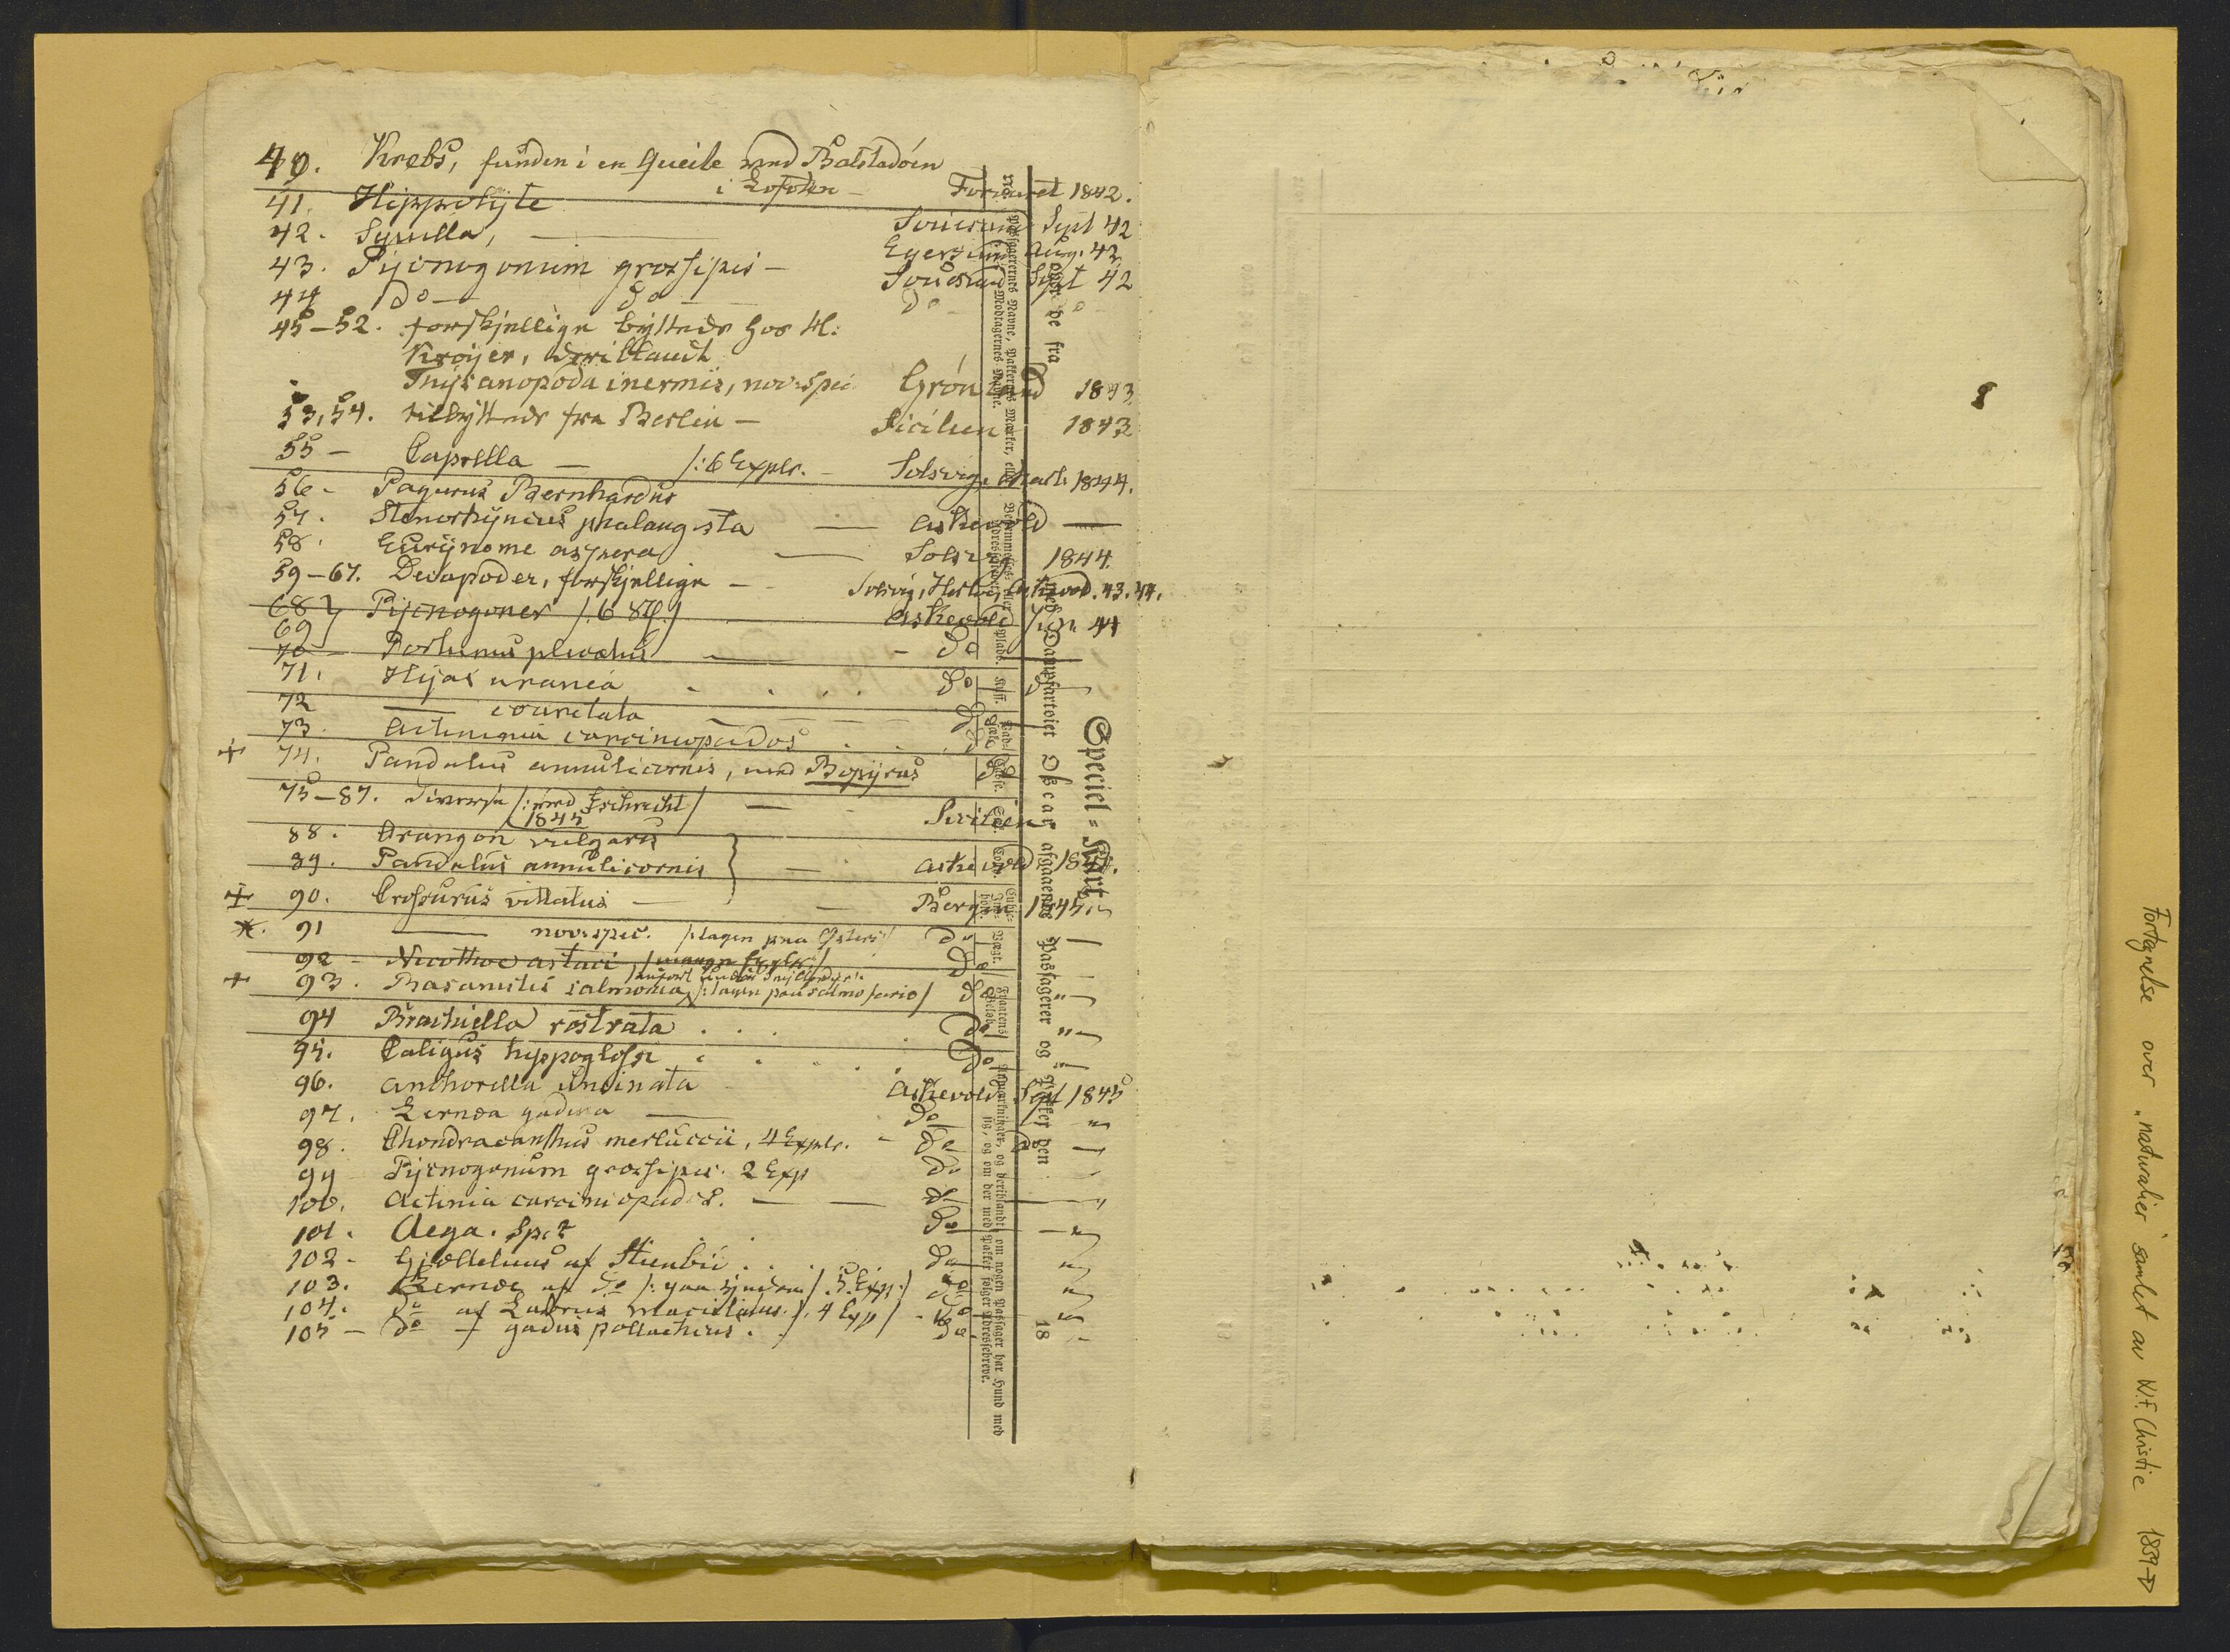 40. Krebs, funden i en Queite ved Balstadöen
i Lofoten — Foraaret 1842.
41. Hippolyte
42. Squilla, — Souesund Sept 42
43. Pycnogonum grossipes — Egersund Aug. 42
44 Do — do — Souesund Sept 42
45–52. forskjellige byttede hos H:
Kroijer, deriblandt
Thysanopoda inermis, nov: spec Grönland 1843
53, 54. tilbyttede fra Berlin — Sicilien 1843
55 — Caprella — /: 6 Explr. — Solsvig, Marts 1844.
56 – Pagurus Bernhardus
57. Stenorhyncus phalangsta — Askevold —
58. Eurynome aspera — Solsvig 1844.
59–67. Decapoder, forskjellige — Solsvig, Herlö, Askevold. 43. 44.
68 } Pycnogoner /: 6 St /
69 } Askevold Juni 44
70 — Portunus plicatus — do —
71. Hyas aranea . . . . do — d —
72 — coarctata — do
73. Actinia carciniopados . . . do
+ 74. Pandalus annulicornis, med Bopyrus do
75–87. diverse /: med Eschricht / — Sicilien
1845
88. Crangon vulgaris
89. Pandalus annulicornis } — Askevold 1845.
+ 90. Crossurus vittatus — Bergen 1845. "
*. 91 — nov: spec. /: tagen paa Do —
92 – Nicothoe astaci / mange Explr: / Do
+ 93. Basanistes salmonea, /: tagen paa salmo fario / do "
94 Brachiella rostrata . . . Do "
95. Caligus hyppoglossi . . . Do "
96. Anchorella uncinata Askevold Sept 1845
97. Lernæa gadina — Do "
98. Chondracanthus merluccii, 4 Explr. – do —
99 Pycnogonum grossipes. 2 Exp do
100. Actinia carciniopados. — — do — "
101. Aega. Sp: ? . . do — "
102 – Gjælleluus af Steenbit . . . do "
103. Lernæa af do /: paa Øjnene / . 5 Exp: / do "
104. do af Labrus maculatus. /. 4 Exp / – do "
105 — do – f gadus pollachius . . do. "
Speciel=Kart
over de fra med Dampfartøiet Oscar afgaaende Passagerer og Pakker den 18
No. Passagerernes Navne, Pakkernes Mærker, eller Modtagernes Navne.
Bestemmelses- eller Adressestedet.
Plads.
Kuff.
Vægt.
Fragtens Beløb.
Anmærkninger, og deriblandt, om nogen Passager har Hund med sig, og om der med Pakker følger Adressebreve.
Fortegnelse over „naturalier" samlet av W.F. Christie 1839→